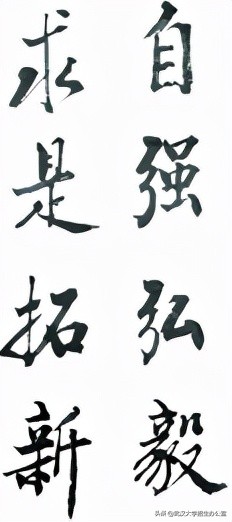 自强弘毅
求是拓新
头条@武汉大学招生办公室